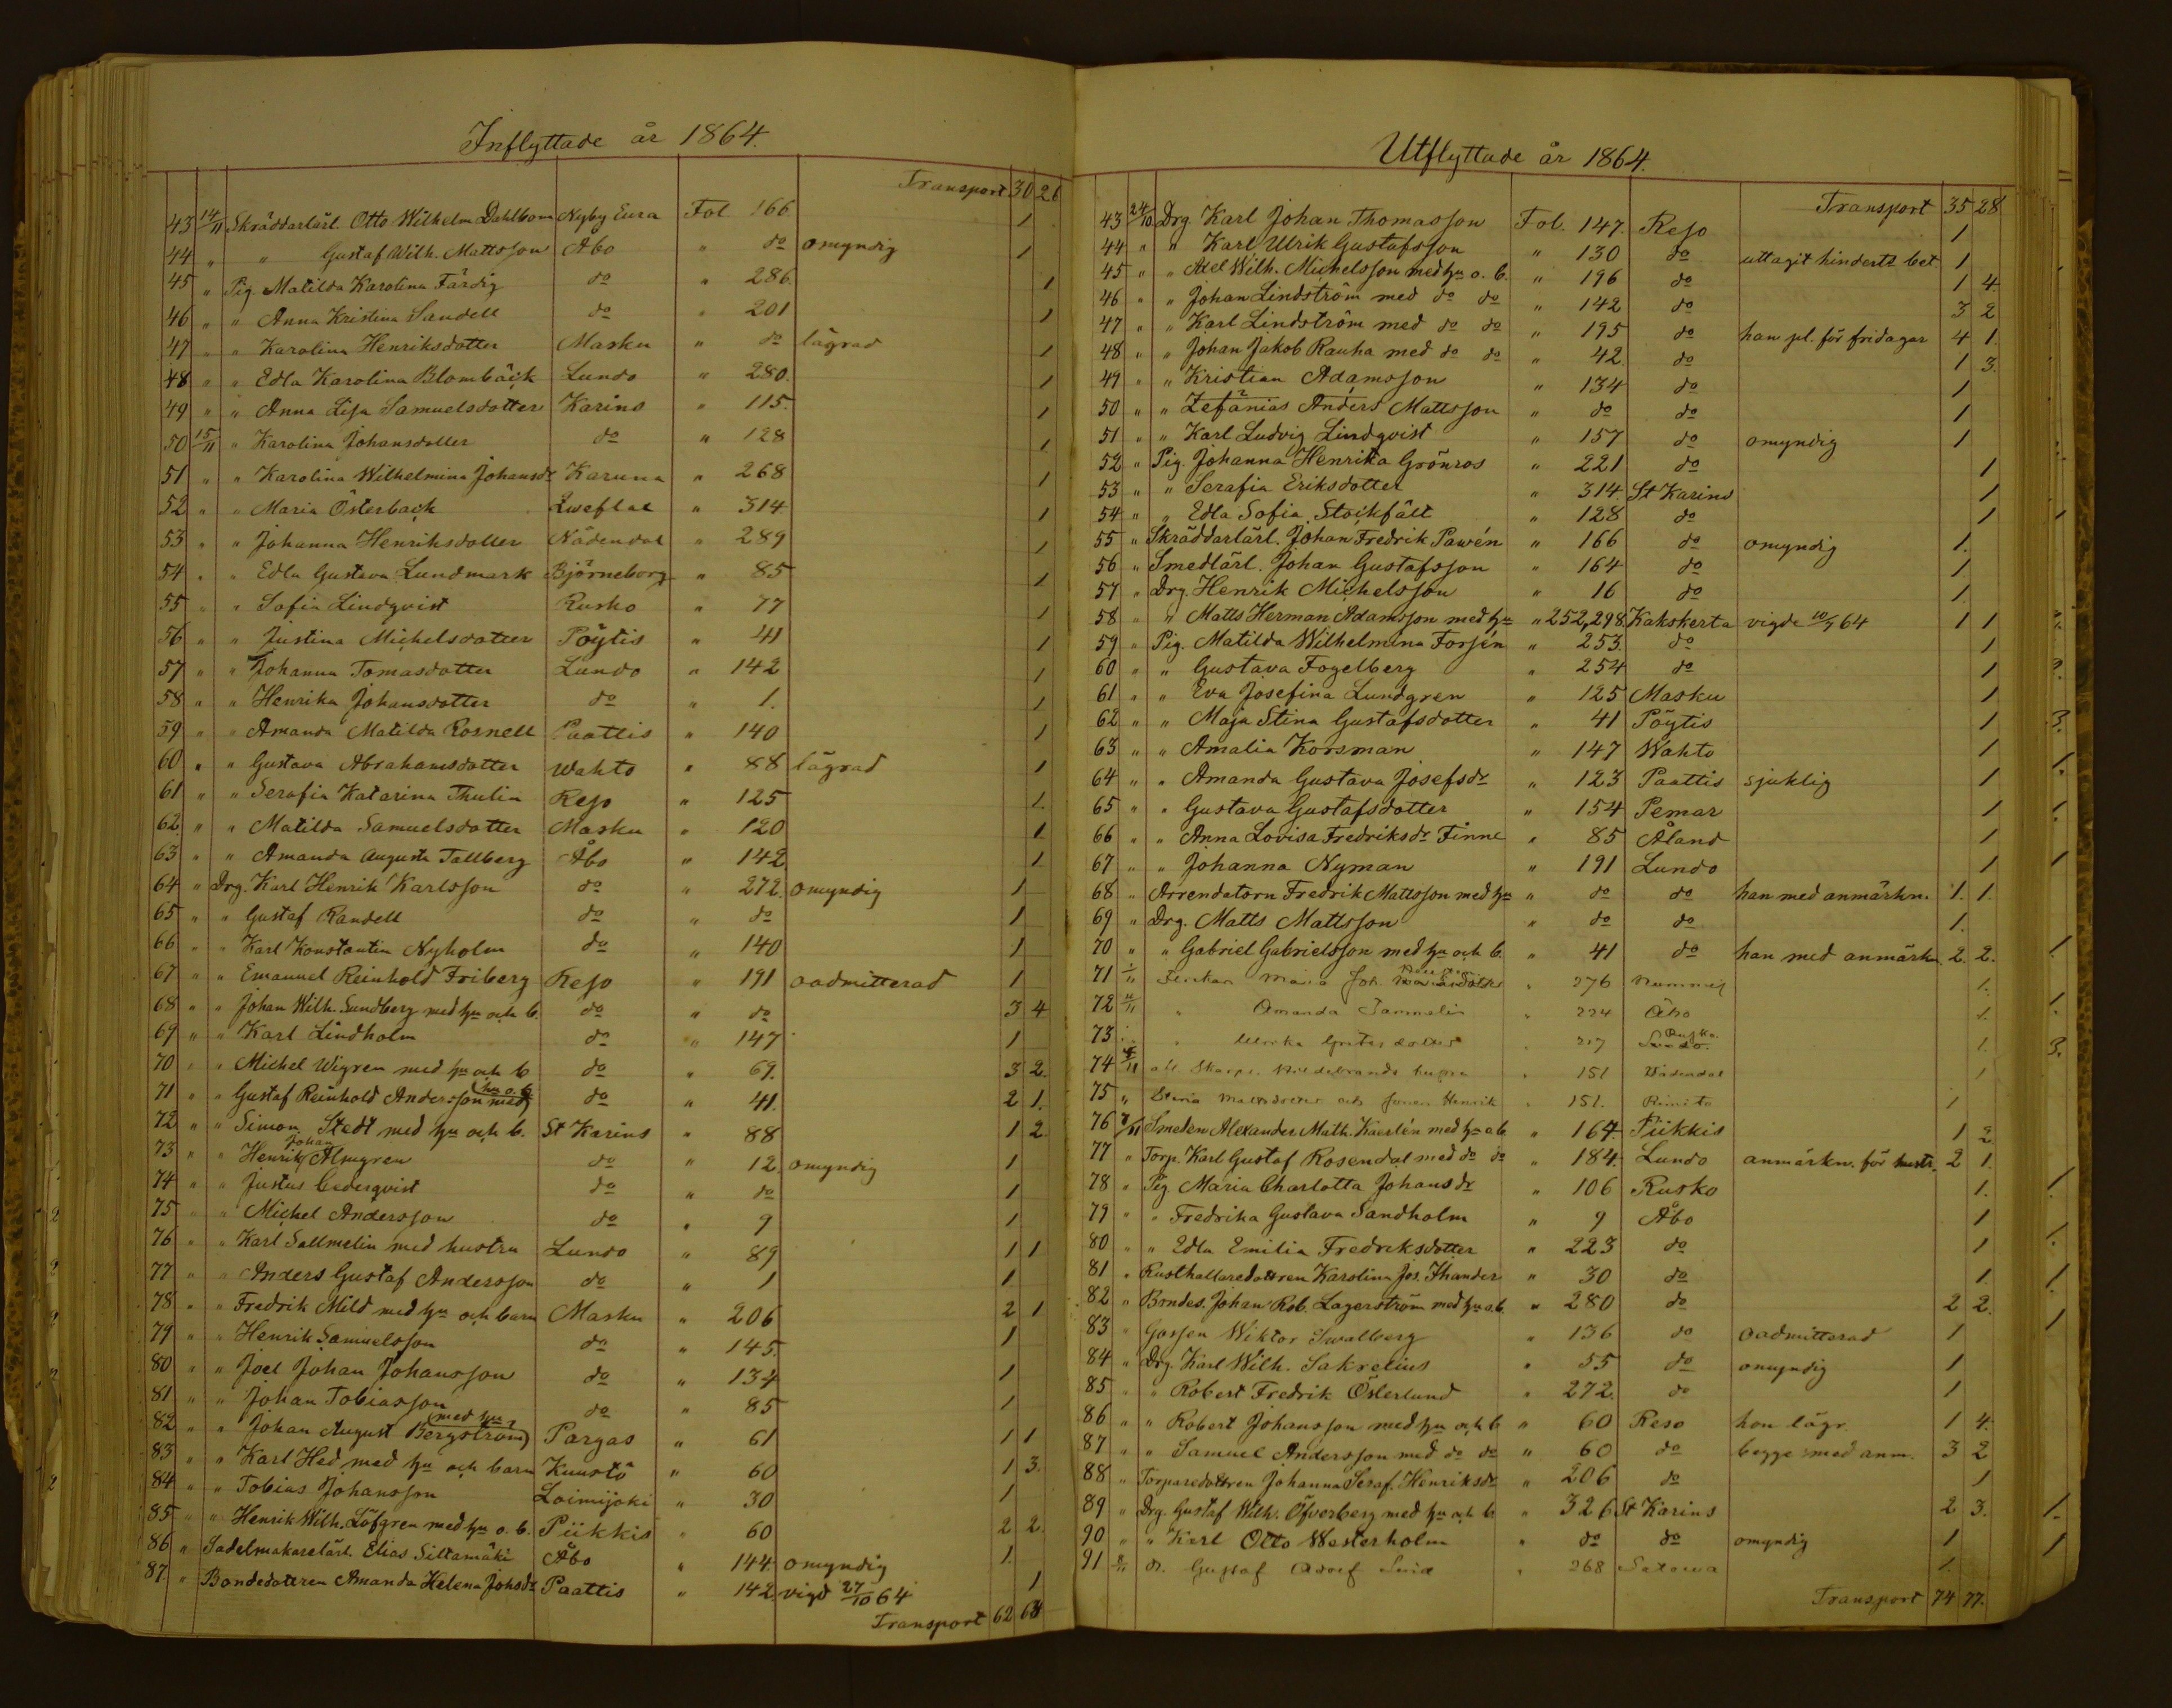 Inflyttade år 1864.
Transport 30 26
43 14/11 Skräddarlärl. Otto Wilhelm Dahlbom Nyby Eura Fol 166 1
44 " " Gustaf Wilh. Mattsson Åbo " do omyndig 1
45 " Pig. Matilda Karolina Färdig do " 286. 1
46 " " Anna Kristina Sandell do " 201 1
47 " " Karolina Henriksdotter Masku " do lägrad 1
48 " " Edla Karolina Blombäck Lundo " 280. 1
49 " " Anna Lisa Samuelsdotter Karins " 115. 1
50 15/11 " Karolina Johansdotter do " 128 1
51 " " Karolina Wilhelmina Johansdr Karuna " 268 1
52 " " Maria Österback " 314 1
53 " " Johanna Henriksdotter Nådendal " 289 1
54 " " Edla Gustava Lundmark Björneborg " 85 1
55 " " Sofia Lindqvist Rusko " 77 1
56 " " Justina Michelsdotter Pöytis " 41 1
57 " " Johanna Tomasdotter Lundo " 142 1
58 " " Henrika Johansdotter do " 1. 1
59 " " Amanda Matilda Rosnell Paattis " 140 1
60 " " Gustava Abrahamsdotter Wahto " 88 lägrad 1
61 " " Serafia Katarina Thulin Reso " 125 1.
62 " " Matilda Samuelsdotter Masku " 120 1
63 " " Amanda Augusta Tallberg Åbo " 142 1
64 " Drg. Karl Henrik Karlsson do " 272. omyndig 1
65 " " Gustaf Randell do " do 1
66 " " Karl Konstantin Nyholm do " 140 1
67 " " Emanuel Reinhold Friberg Reso " 191 oadmitterad 1
68 " " Johan Wilh. Sundberg med hu och b. do " do 3 4
69 " " Karl Lindholm do " 147 1
70 " " Michel Wigren med hu och b do " 69. 3 2.
71 " " Gustaf Reinhold Andersson med hu o. b. do " 41. 2 1.
72 " " Simon Stedt med hu och b. St Karins " 88 1 2
73 " " Henrik Johan Almgren do " 12. omyndig 1
74 " " Justus Cederqvist do " do 1
75 " " Michel Andersson do " 9 1
76 " " Karl Sallmelin med hustru Lundo " 89 1 1
77 " " Anders Gustaf Andersson do " 1 1
78 " " Fredrik Mild med hu och barn Masku " 206 2 1
79 " " Henrik Samuelsson do " 145. 1
80 " " Joel Johan Johansson do " 134 1
81 " " Johan Tobiasson do " 85 1
82 " " Johan August Bergström med hu Pargas " 61 1 1
83 " " Karl Hed med hu och barn Kuustö " 60 1 3.
84 " " Tobias Johansson Loimijoki " 30 1
85 " " Henrik Wilh. Löfgren med hu o. b. Piikkis " 60 2 2.
86 " Sadelmakarelärl. Elias Siltamäki Åbo " 144 omyndig 1.
87. " Bondedottren Amanda Helena Johsdr Paattis " 142 vigd 27/10 64 1
Transport 62 68
Utflyttade år 1864.
Transport 35 28
43 24/10 Drg Karl Johan Thomasson Fol. 147. Reso 1
44 " " Karl Ulrik Gustafsson " 130 do uttagit hinderts bet. 1
45 " " Axel Wilh. Michelsson med hu o. b. " 196 do 1 4.
46 " " Johan Lindström med do do " 142 do 3 2
47 " " Karl Lindström med do do " 195 do han pl. för fridagar 4 1.
48 " " Johan Jakob Rauha med do do " 42. do 1 3.
49 " " Kristian Adamsson " 134 do 1
50 " " Zefanias Anders Mattsson " do do 1
51 " " Karl Ludvig Lindqvist " 157 do omyndig 1
52 " Pig. Johanna Henrika Grönros " 221 do 1
53 " " Serafia Eriksdotter " 314 St Karins 1
54 " " Edla Sofia Stockfält " 128 do 1
55 " Skräddarlärl. Johan Fredrik Pawén " 166 do omyndig 1.
56 " Smedlärl. Johan Gustafsson " 164 do 1.
57 " Drg. Henrik Michelsson " 16 do 1.
58 " " Matts Herman Adamsson med hu " 252, 298. Kakskerta vigde 64 1 1
59 " Pig. Matilda Wilhelmina Forsén " 253. do 1
60 " " Gustava Fogelberg " 254 do 1
61 " " Eva Josefina Lundgren " 125 Masku 1
62 " " Maja Stina Gustafsdotter " 41 Pöytis 1
63 " " Amalia Korsman " 147 Wahto 1
64 " " Amanda Gustava Josefsdr " 123 Paattis sjuklig 1
65 " " Gustava Gustafsdotter " 154 Pemar 1
66 " " Anna Lovisa Fredriksdr Finne " 85 Åland 1
67 " " Johanna Nyman " 191 Lundo 1
68 " Arrendatorn Fredrik Mattsson med hu " do do han med anmärkn. 1. 1.
69 " Drg. Matts Mattsson " do do 1.
70 " " Gabriel Gabrielsson med hu och b. " 41 do han med anmärkn. 2. 2.
71 Maria Joh. " 276 Nummis 1.
72 " Amanda Tammelin " 224 Åbo 1.
73 " Ulrika Gretas dotter " 217 Rusko 1.
74 Hildebrands hustru " 151 Nådendal 1
75 " Maria Mattsdotter och sonen Henrik " 151. Rimito 1
76 7/11 Smeden Alexander Math. Kaerlén med hu o b. " 164. Piikkis 1 2
77 " Torp. Karl Gustaf Rosendal med do do " 184. Lundo anmärkn. för hustr. 2 1.
78 " Pig. Maria Charlotta Johansdr " 106 Rusko 1.
79 " " Fredrika Gustava Sandholm " 9 Åbo 1
80 " " Edla Emilia Fredriksdotter " 223 do 1
81 " Rusthallaredottren Karolina Jos. Ithander " 30 do 1.
82 " Bondes. Johan Rob. Lagerström med hu o b. " 280 do 2 2.
83 " Gossen Wiktor Swalberg " 136 do oadmitterad 1
84 " Drg. Karl Wilh. Sakrelius " 55 do omyndig 1
85 " " Robert Fredrik Österlund " 272. do 1
86 " " Robert Johansson med hu och b " 60 Reso hon lägr. 1 4.
87 " " Samuel Andersson med do do " 60 do begge med anm. 3 2
88 " Torparedottren Johanna Seraf. Henriksdr " 206 do 1
89 " Drg. Gustaf Wilh. Öfverberg med hu och b " 326 St Karins 2 3.
90 " " Karl Otto Westerholm " do do omyndig 1
91 Gustaf Adolf " 268 Satava 1.
Transport 74 77.